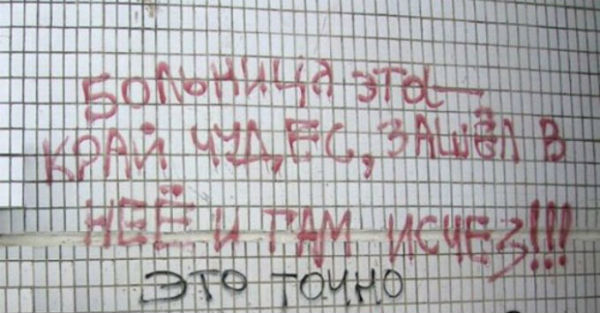 БОЛЬНИЦА ЭТО —
КРАЙ ЧУДЕС, ЗАШЁЛ В
НЕЁ И ТАМ ИСЧЕЗ!!!
ЭТО ТОЧНО